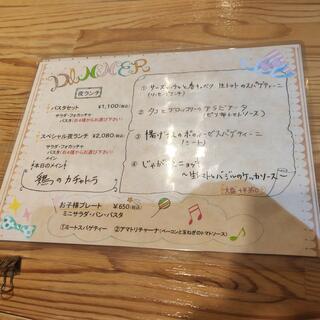 DINNER
夜ランチ
パスタセット ¥1,100(税込)
サラダ・フォカッチャ
パスタ(お4種からお選び下さい)
スペシャル夜ランチ ¥2,080(税込)
サラダ・フォカッチャ
パスタ(お4種からお選び下さい)
メイン
本日のメイン
鶏のカチャトラ
お子様プレート ¥650(税込)
ミニサラダ・パン・パスタ
①ミートスパゲティー ②アマトリチャーナ(ベーコンと玉ねぎのトマトソース)
①
春キャベツ
スパゲティーニ
② タコとブロッコリーのアラビアータ
トマトソース)
③ 揚げナスのボロネーゼスパゲティーニ
(ミート)
④ じゃがいもニョッキ
～生トマトとバジルのケッカソース～
大盛 +¥350